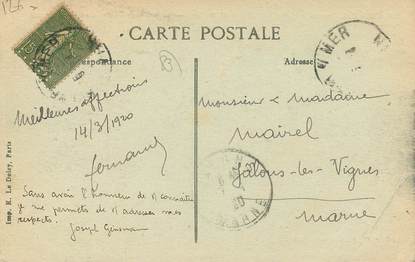 126
CARTE POSTALE
Correspondance
Adresse
MER
15
Meilleures affections
14/3/1920
Fernand
Sans avoir l'honneur de v connaître
je me permets de v adresser mes
respects.
Joseph
Monsieur & Madame
Mairel
Jalons-les-Vignes
Marne
Imp. E. Le Deley, Paris